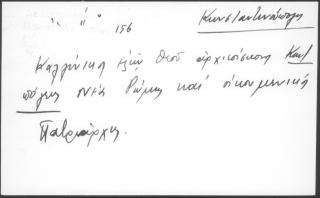 " " " 156 Κωνσταντινούπολη
Καλλίνικος ἐλέῳ Θεοῦ ἀρχιεπίσκοπος Κων/
πόλεως Νέας Ρώμης καί οἰκουμενικός
Πατριάρχης.